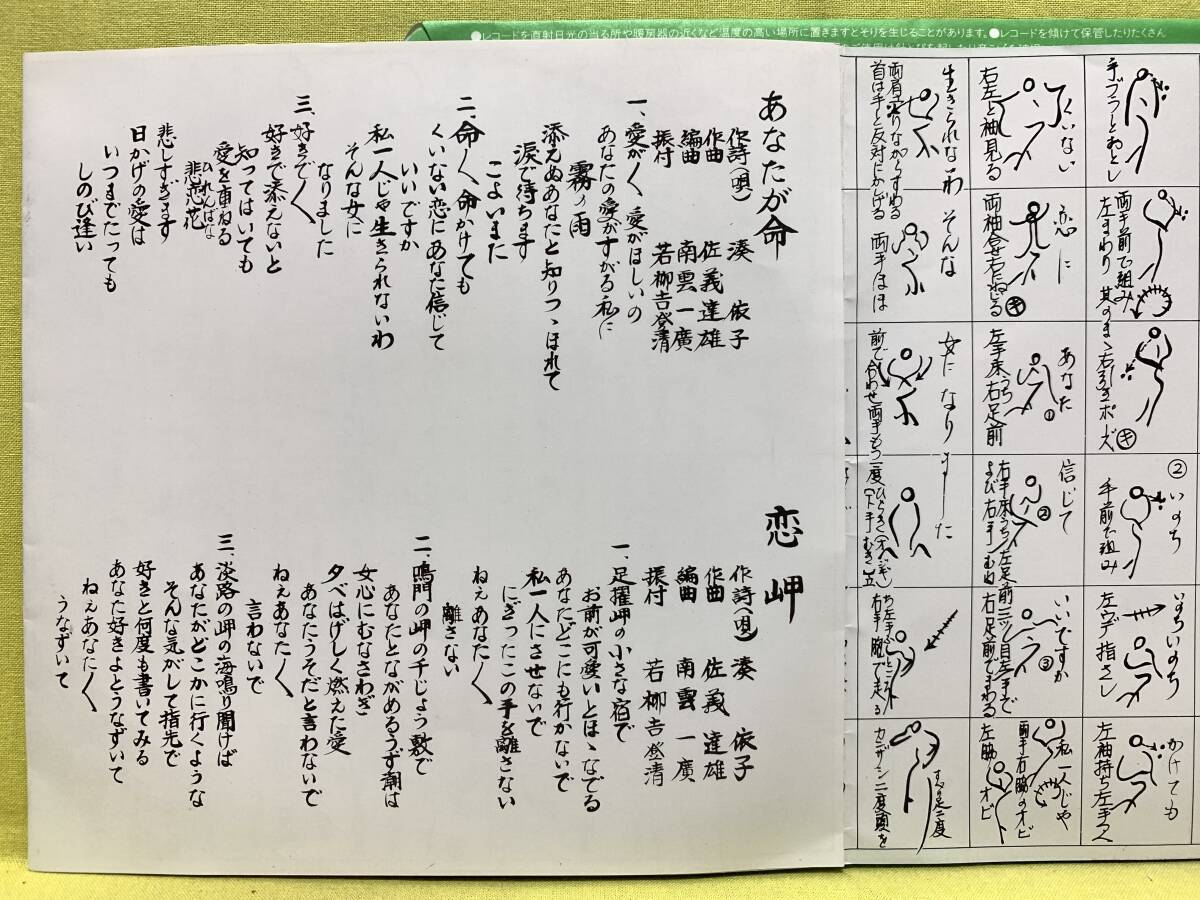 ●レコードを直射日光の当る所や暖房器の近くなど温度の高い場所に置きますとそりを生じることがあります。●レコードを傾けて保管したりたくさん
あなたが命
作詩(唄) 湊 依子
作曲 佐義達雄
編曲 南雲一廣
振付 若柳吉登清
一、愛が〱、愛がほしいの
あなたの愛がすがる私に
霧の雨
添えぬあなたと知りつゝほれて
涙で待ちます
こよいまた
二、命〱、命かけても
くいない恋にあなた信じて
いいですか
私一人じゃ生きられないわ
そんな女に
なりました
三、好きで〱
好きで添えないと
知ってはいても
愛を重ねる
悲恋花
ひれんばな
悲しすぎます
日かげの愛は
いつまでたっても
しのび逢い
恋岬
作詩(唄) 湊 依子
作曲 佐義達雄
編曲 南雲一廣
振付 若柳吉登清
一、足摺岬の小さな宿で
お前が可愛いとほゝなでる
あなたどこにも行かないで
私一人にさせないで
にぎったこの手を離さない
ねぇあなた〱
離さない
二、鳴門の岬の千じょう敷で
あなたとながめるうず潮は
女心にむなさわぎ
夕べはげしく燃えた愛
あなたうそだと言わないで
ねぇあなた〱
言わないで
三、淡路の岬の海鳴り聞けば
あなたがどこかに行くような
そんな気がして指先で
好きと何度も書いてみる
あなた好きよとうなずいて
ねぇあなた〱
うなずいて
手ブラとおとし
両手前で組み
左まわり 其のまゝ右引きポーズ
キ
②
いのち
手前で組み
いのちいのち
左ウデ指さし
かけても
左袖持ち左手へ
くいない
右左と袖見る
恋に
両袖合せ右にねじる
キ
あなた
①
左手束うち右足前
信じて
②
右手束うち左足前
よび右手ンむね
いいですか
③
三ツ目左手で
右足前でまわる
私一人じゃ
両手右脇のオビ
左脇オビ
生きられないわ
両肩変りながらすわる
首は手と反対にかしげる
そんな
両手ほほ
女になりました
前で合わせ両手もう一度
右手胸で走る
カンザシ二度頭を